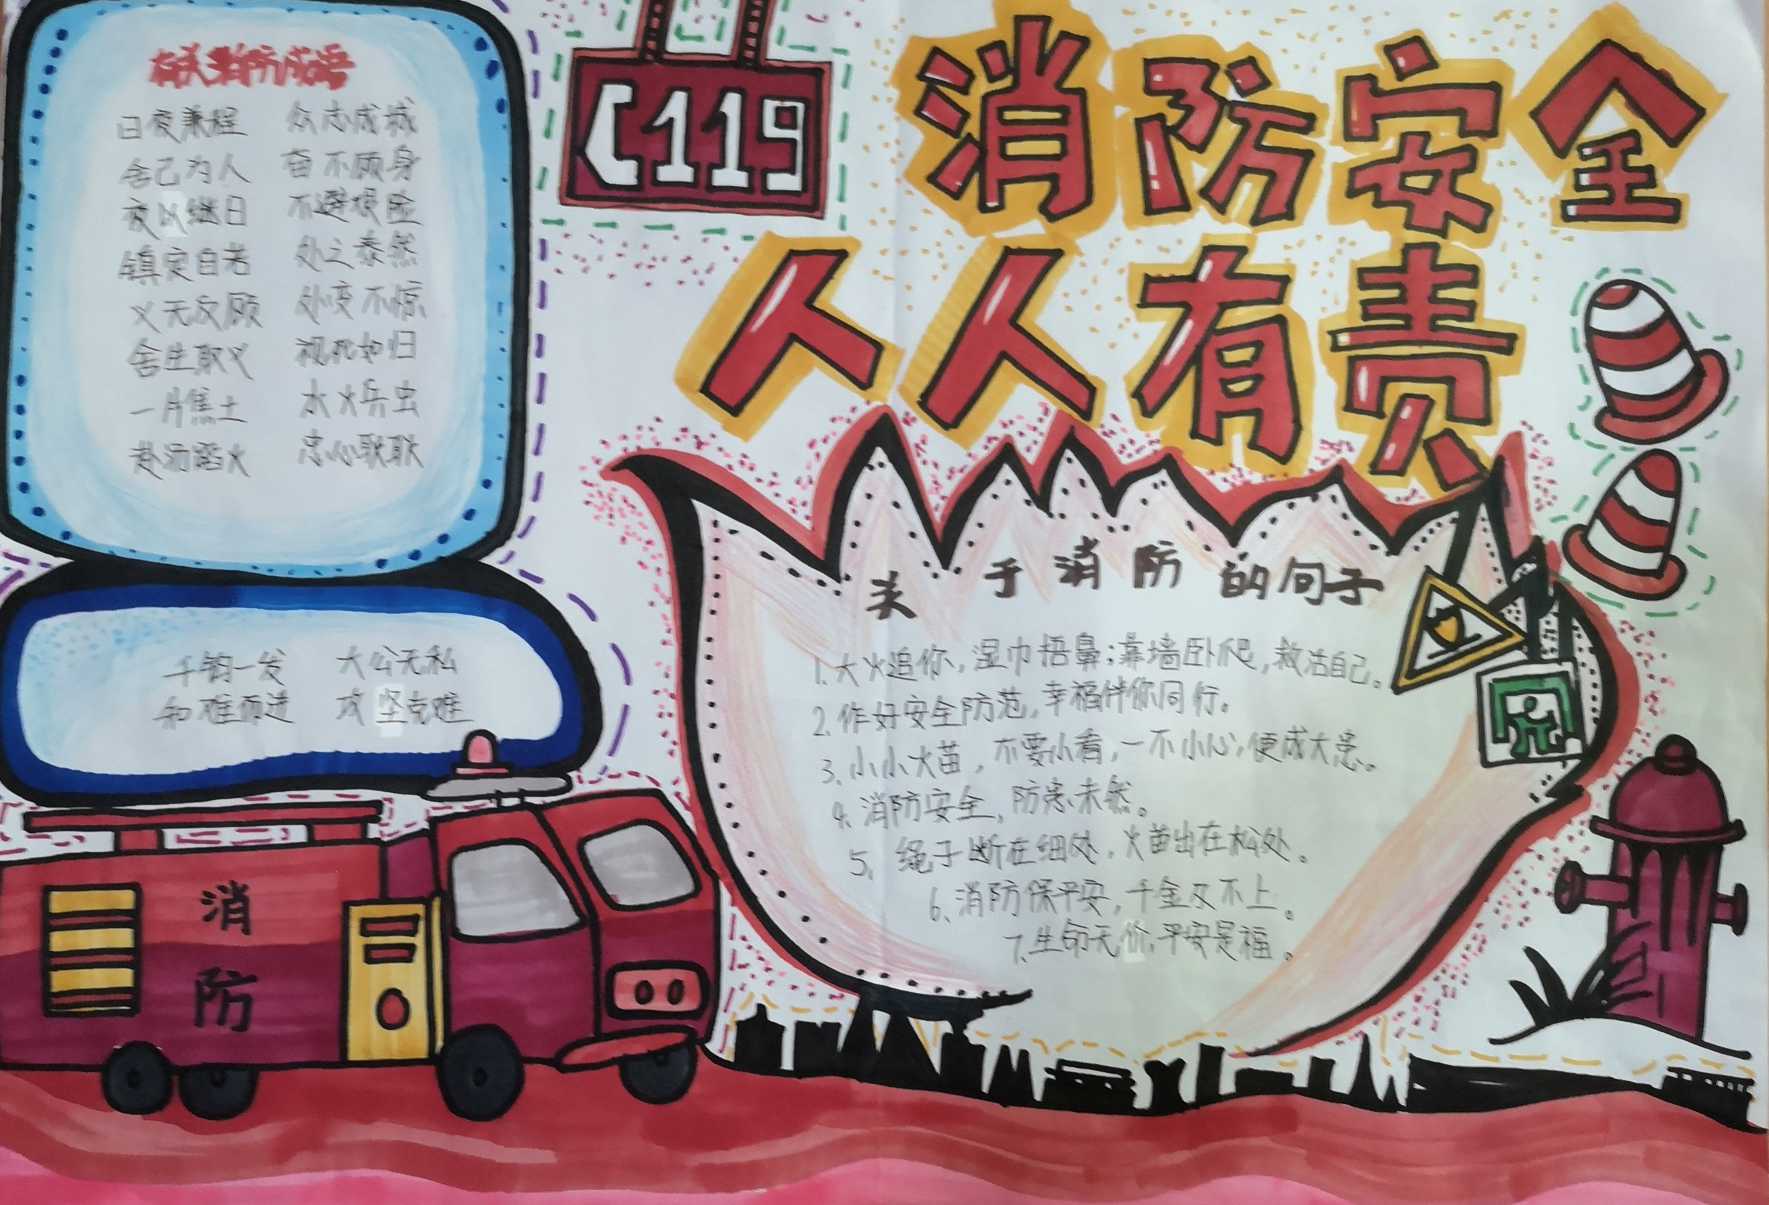 有关消防成语
日夜兼程 众志成城
舍己为人 奋不顾身
夜以继日 不避艰险
镇定自若 处之泰然
义无反顾 处变不惊
舍生取义 视死如归
一片焦土 水火兵虫
赴汤蹈火 忠心耿耿
千钧一发 大公无私
知难而进 攻坚克难
119
消防安全
人人有责
关于消防的句子
1.大火追你，湿巾捂鼻；靠墙卧爬，救活自己。
2.作好安全防范，幸福伴你同行。
3.小小火苗，不要小看，一不小心，便成大患。
4.消防安全，防患未然。
5.绳子断在细处，火苗出在松处。
6、消防保平安，千金及不上。
7.生命无价，平安是福。
消
防